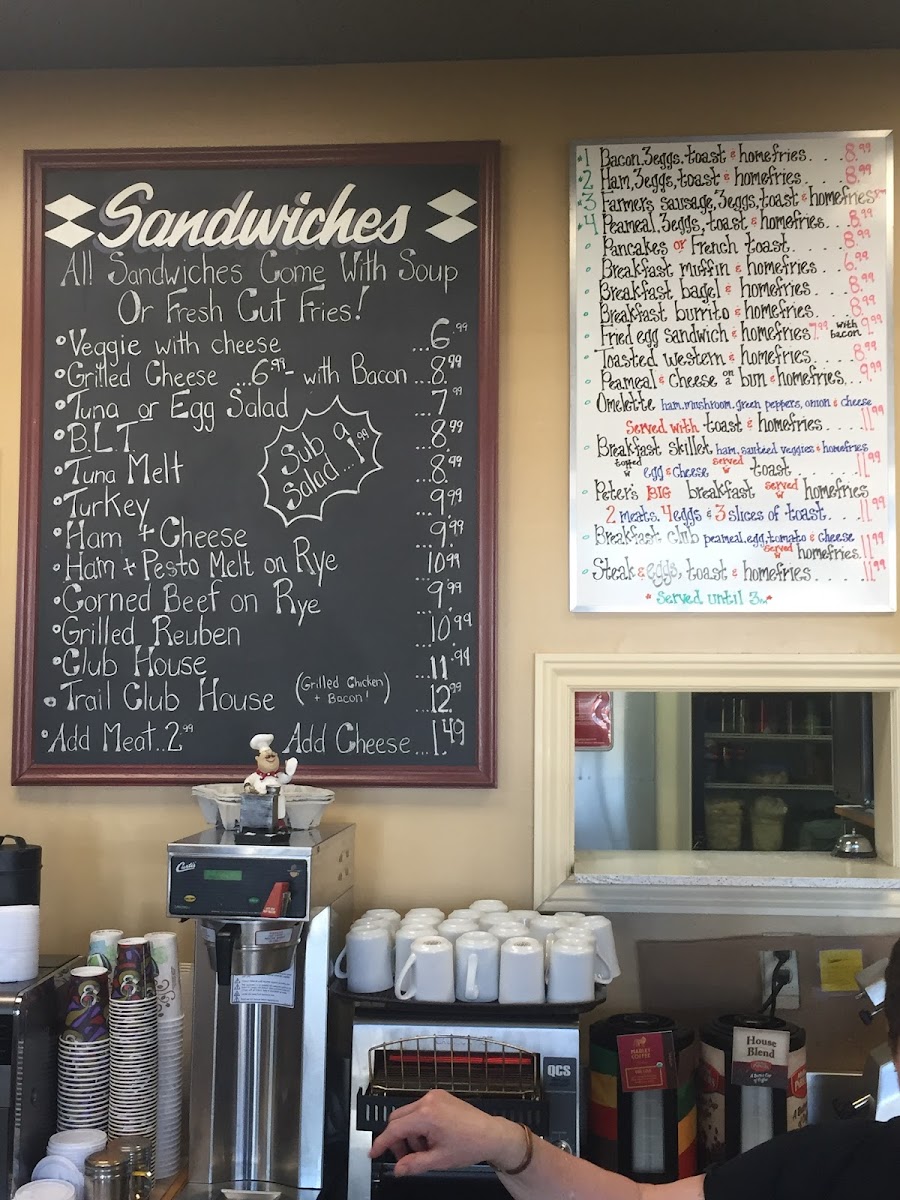 Sandwiches
All Sandwiches Come With Soup
Or Fresh Cut Fries!
•Veggie with cheese ...6.99
•Grilled Cheese ...6.99- with Bacon ...8.99
•Tuna or Egg Salad ...7.99
•B.L.T. ...8.99
•Tuna Melt ...8.99
•Turkey ...9.99
•Ham + Cheese ...9.99
•Ham + Pesto Melt on Rye ...10.99
•Corned Beef on Rye ...9.99
•Grilled Reuben ...10.99
•Club House ...11.99
•Trail Club House (Grilled Chicken + Bacon!) ...12.99
•Add Meat..2.99 Add Cheese ...1.49
Sub a
Salad...1.99
#1 Bacon, 3eggs, toast & homefries....8.99
#2 Ham, 3eggs, toast & homefries....8.99
#3 Farmers sausage, 3eggs, toast & homefries
#4 Peameal, 3eggs, toast & homefries...8.99
Pancakes or French toast.....8.99
Breakfast muffin & homefries...6.99
Breakfast bagel & homefries....8.99
Breakfast burrito & homefries...8.99
Fried egg sandwich & homefries 7.99 with bacon 9.99
Toasted western & homefries....8.99
Peameal & cheese on a bun & homefries...9.99
Omelette ham, mushroom, green peppers, onion & cheese
Served with toast & homefries....11.99
Breakfast Skillet ham, sauteed veggies & homefries
topped w egg & cheese served w toast.......11.99
Peter's BIG breakfast served w homefries
2 meats, 4eggs & 3 slices of toast....11.99
Breakfast club peameal, egg, tomato & cheese
served w homefries.11.99
Steak & eggs, toast & homefries.....11.99
*Served until 3pm*
Curtis
QCS
MARLEY
COFFEE
House
Blend